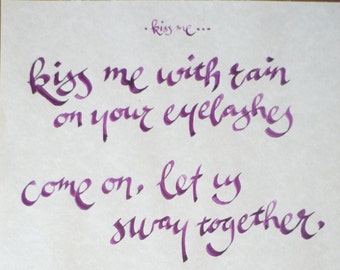 . kiss me...
kiss me with rain
on your eyelashes
come on, let us
sway together,